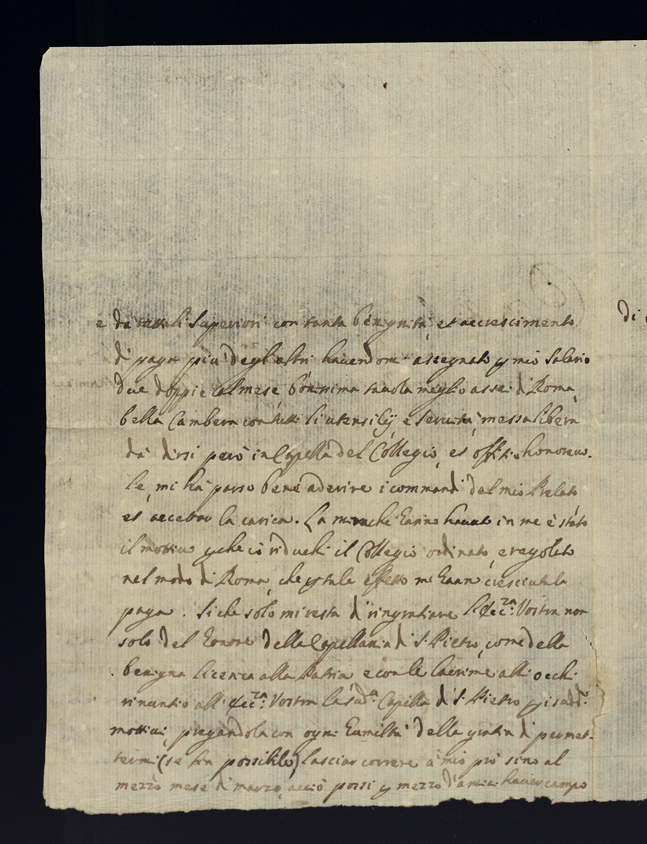 e da tutti li Superiori con tanta benignità, et accrescimento
di paga più degl'altri havendomi assegnato p mio Salario
due doppie al mese, bonissima tavola meglio assai di Roma,
bella Cambera con tutti li utensilij, e servitù, messa libera
da dirsi però in Capella del Collegio, et offitio honorevo-
le, mi hà parso bene aderire i commandi del mio Prelato
et accettar la carica. La mira che hanno havuto in me è stato
il mottivo p che io riduchi il Collegio ordinato, e regolato
nel modo di Roma, che p tale effetto mi hann cresciuta la
paga. Siche solo mi resta di ringratiare l' Ecc.za Vostra non
solo del honore della Capellania di S. Pietro, come della
benigna licenza alla Patria e con le lacrime alli occhi
rinuntio all' Ecc.za Vostra la sud.a Capella di S. Pietro p i sudd.i
mottivi, pregandola con ogni humiltà della gratia di permet-
termi (se sia possibile) lasciar correre à mio prò sino al
mezzo mese di marzo, acciò possi p mezzo d'amici haver campo
di